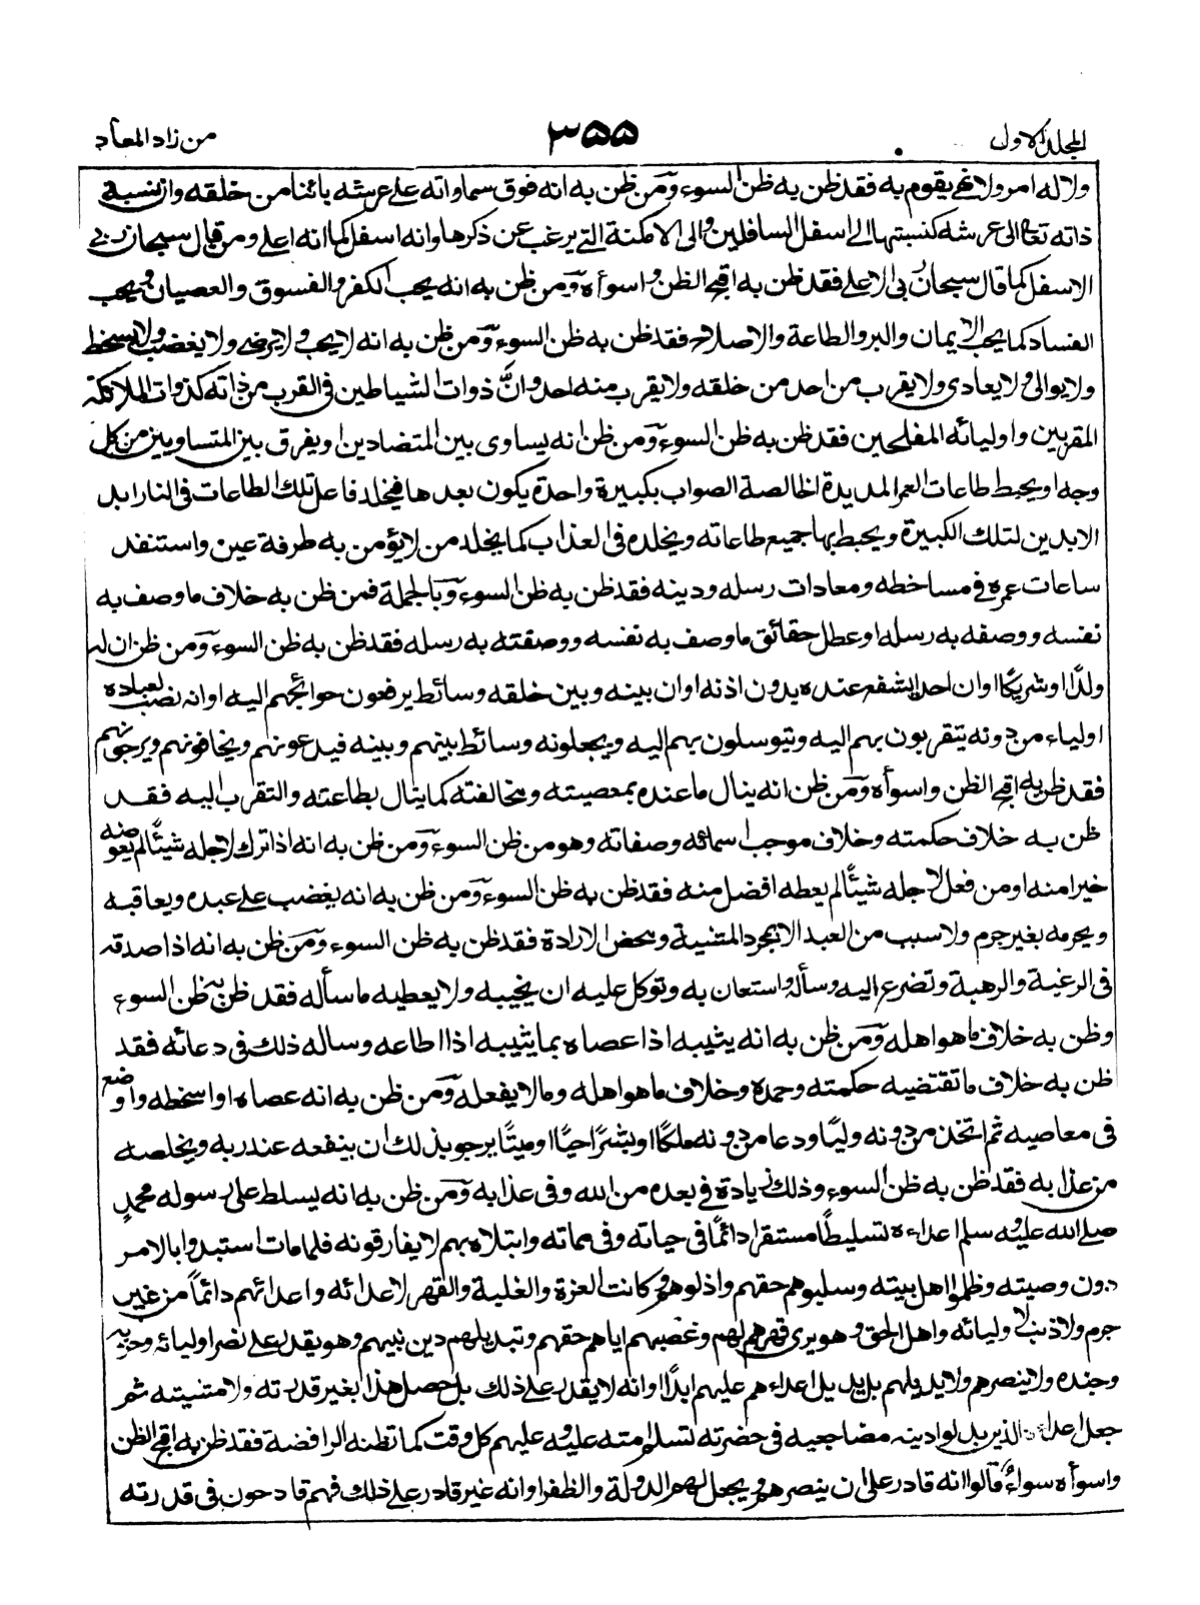 المجلد الاول
٣٥٥
من زاد المعاد
ولا له امر ولا نهي يقوم به فقد ظن به ظن السوء ومن ظن به انه فوق سماواته على عرشه بائنا من خلقه وان نسبة
ذاته تعالى الى عرشه كنسبتها الى اسفل السافلين والى الامكنة التي يرغب عن ذكرها وانه اسفل كما انه اعلى ومن قال سبحان ربي
الاسفل كما قال سبحان ربي الاعلى فقد ظن به اقبح الظن واسوأه ومن ظن به انه يحب الكفر والفسوق والعصيان ويحب
الفساد كما يحب الايمان والبر والطاعة والاصلاح فقد ظن به ظن السوء ومن ظن به انه لا يحب ولا يرضى ولا يغضب ولا يسخط
ولا يوالى ولا يعادى ولا يقرب من احد من خلقه ولا يقرب منه احد وان ذوات الشياطين في القرب من ذاته كذوات الملائكة
المقربين واوليائه المفلحين فقد ظن به ظن السوء ومن ظن انه يساوى بين المتضادين او يفرق بين المتساويين من كل
وجه او يحبط طاعات العمر المديدة الخالصة الصواب بكبيرة واحدة يكون بعدها فيخلد فاعل تلك الطاعات في النار ابد
الابدين لتلك الكبيرة ويحبط بها جميع طاعاته ويخلده في العذاب كما يخلد من لا يؤمن به طرفة عين واستنفد
ساعات عمره في مساخطه ومعادات رسله ودينه فقد ظن به ظن السوء وبالجملة فمن ظن به خلاف ما وصف به
نفسه ووصفه به رسله او عطل حقائق ما وصف به نفسه ووصفته به رسله فقد ظن به ظن السوء ومن ظن ان له
ولدًا او شريكًا او ان احدا يشفع عنده بدون اذنه او ان بينه وبين خلقه وسائط يرفعون حوائجهم اليه او انه نصب لعباده
اولياء من دونه يتقربون بهم اليه ويتوسلون بهم اليه ويجعلونه وسائط بينهم وبينه فيدعونهم ويخافونهم ويرجونهم
فقد ظن به اقبح الظن واسوأه ومن ظن انه ينال ما عنده بمعصيته ومخالفته كما ينال بطاعته والتقرب اليه فقد
ظن به خلاف حكمته وخلاف موجب اسمائه وصفاته وهو من ظن السوء ومن ظن به انه اذا ترك لاجله شيئًا لم يعوضه
خيرا منه او من فعل لاجله شيئًا لم يعطه افضل منه فقد ظن به ظن السوء ومن ظن به انه يغضب على عبده ويعاقبه
ويحرمه بغير جرم ولا سبب من العبد الا بمجرد المشية ومحض الارادة فقد ظن به ظن السوء ومن ظن به انه اذا صدقه
في الرغبة والرهبة وتضرع اليه وسأله واستعان به وتوكل عليه ان يخيبه ولا يعطيه ما سأله فقد ظن به ظن السوء
وظن به خلاف ما هو اهله ومن ظن به انه يثيبه اذا عصاه بما يثيبه اذا اطاعه وساله ذلك في دعائه فقد
ظن به خلاف ما تقتضيه حكمته وحمده وخلاف ما هو اهله وما لا يفعله ومن ظن به انه عصاه او اسخطه واوضع
في معاصيه ثم اتخذ من دونه وليًا ودعا من دونه ملكًا او بشرًا حيًا او ميتًا يرجو بذلك ان ينفعه عند ربه ويخلصه
من عذابه فقد ظن به ظن السوء وذلك زيادة في بعده من الله وفى عذابه ومن ظن به انه يسلط على رسوله محمد
صلى الله عليه وسلم اعداءه تسليطًا مستقرا دائمًا في حياته وفى مماته وابتلاه بهم لا يفارقونه فلما مات استبدوا بالامر
دون وصيته وظلموا اهل بيته وسلبوهم حقهم واذلوهم وكانت العزة والغلبة والقهر لاعدائه واعدائهم دائمًا من غير
جرم ولا ذنب لاوليائه واهل الحق وهو يرى قهرهم لهم وغصبهم اياهم حقهم وتبديلهم دين نبيهم وهو يقدر على نصر اوليائه وحزبه
وجنده ولا ينصرهم ولا يديلهم بل يديل اعداءهم عليهم ابدًا او انه لا يقدر على ذلك بل حصل هذا بغير قدرته ولا مشيته ثم
جعل اعداءه الذين بدلوا دينه مضاجعيه في حضرته تسلم امته عليه وعليهم كل وقت كما تظنه الرافضة فقد ظن به اقبح الظن
واسوأه سواءً قالوا انه قادر على ان ينصرهم ويجعل لهم الدولة والظفر او انه غير قادر على ذلك فهم قادحون في قدرته